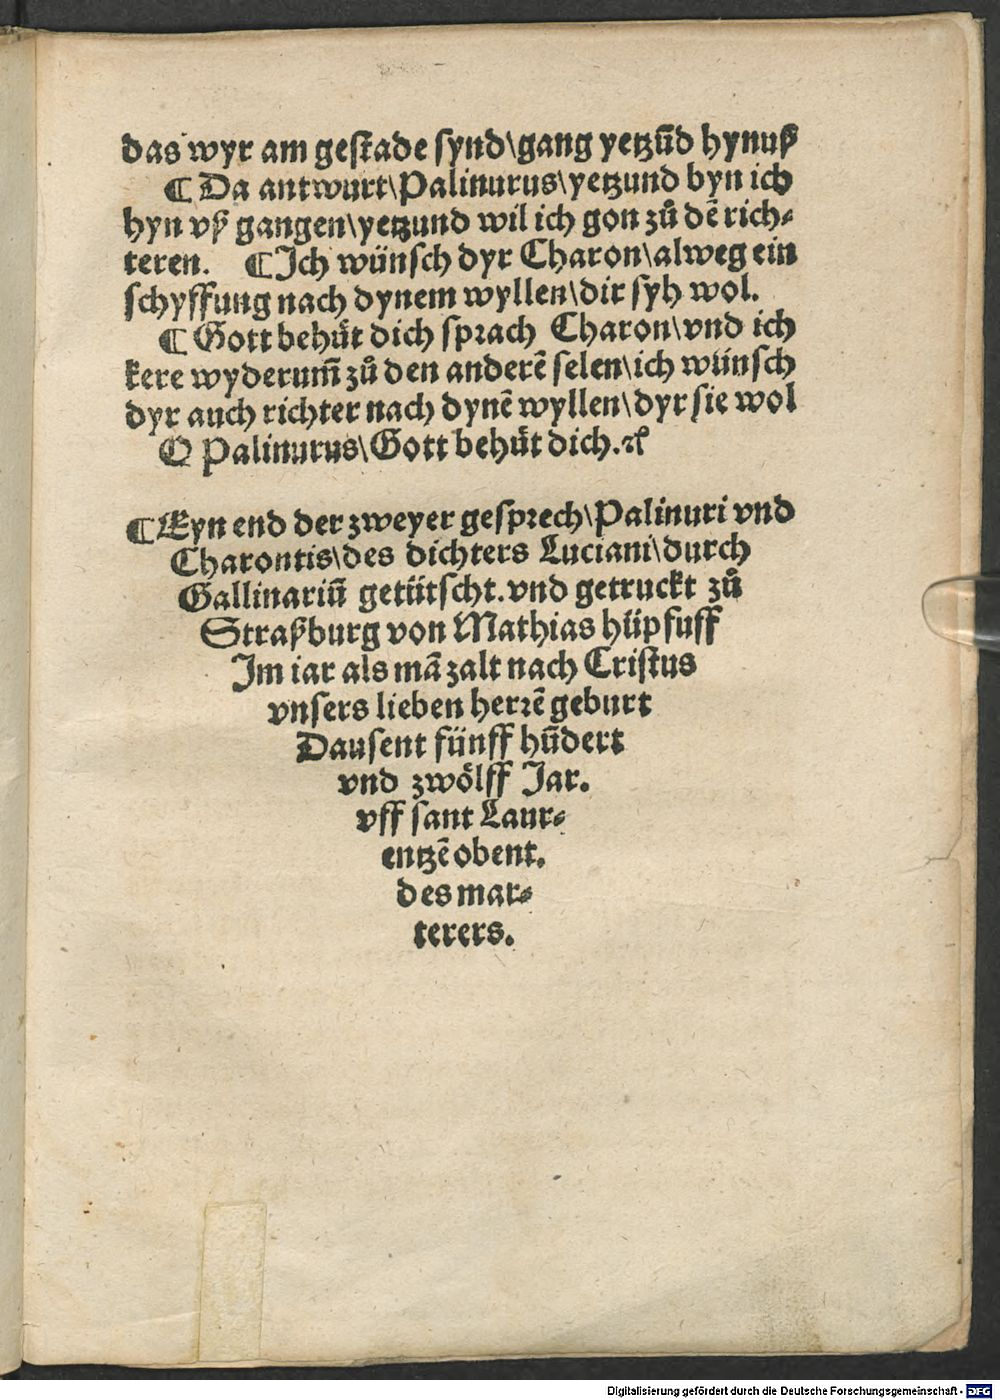 das wyr am gestade synd\gang yetzūd hynuß
¶ Da antwurt\Palinurus\yetzund byn ich
hyn vß gangen\yetzund wil ich gon zů dē rich⸗
teren. ¶ Ich wünsch dyr Charon\alweg ein
schyffung nach dynem wyllen\dir syh wol.
¶ Gott behuͤt dich sprach Charon\vnd ich
kere wyderum̄ zů den anderē selen\ich wünsch
dyr auch richter nach dynē wyllen\dyr sie wol
O Palinurus\Gott behuͤt dich.ꝛc
¶ Eyn end der zweyer gesprech\Palinuri vnd
Charontis\des dichters Luciani\durch
Gallinariū getütscht.vnd getruckt zů
Straßburg von Mathias hüpfuff
Im iar als mā zalt nach Cristus
vnsers lieben herrē geburt
Dausent fünff hūdert
vnd zwoͤlff Jar.
vff sant Laur⸗
entzē obent.
des mar⸗
terers.
Digitalisierung gefördert durch die Deutsche Forschungsgemeinschaft - DFG